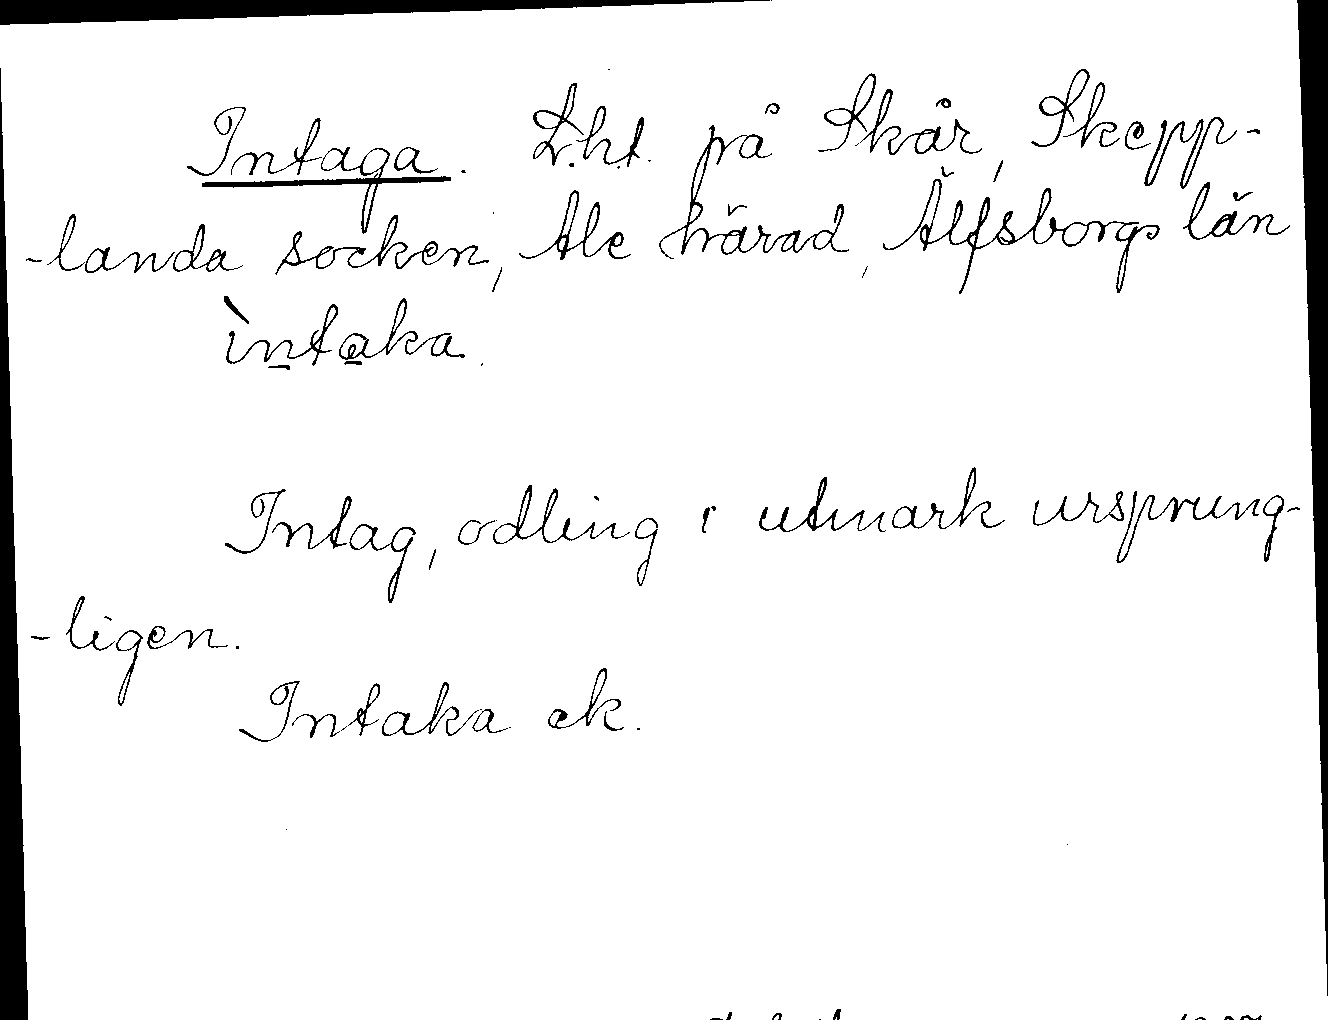 Intaga. L.ht. på Skår, Skepp-
-landa socken, Ale härad, Älfsborgs län
ìntaka.
Intag, odling i utmark ursprung-
-ligen.
Intaka ek.